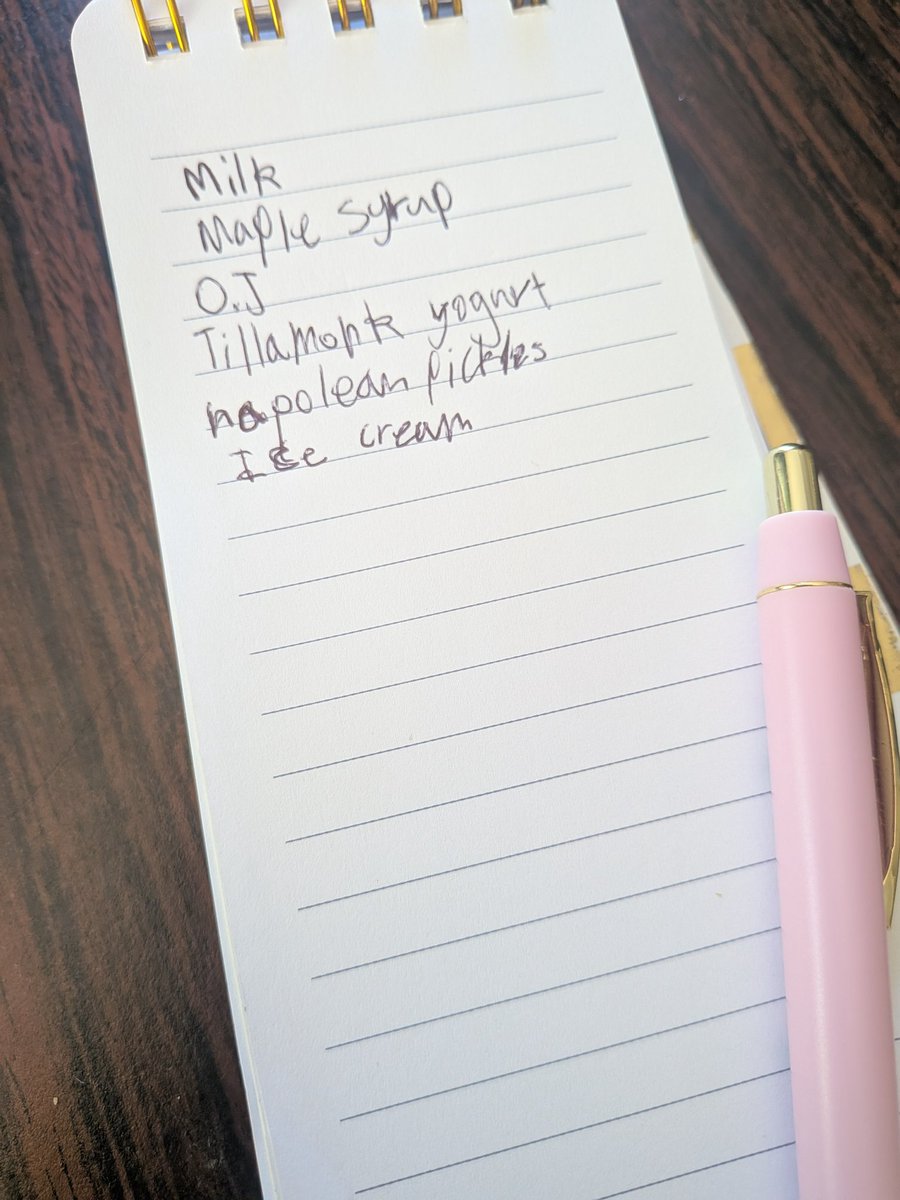 Milk
Maple syrup
O.J
Tillamonk yogurt
napolean pickles
Ice cream